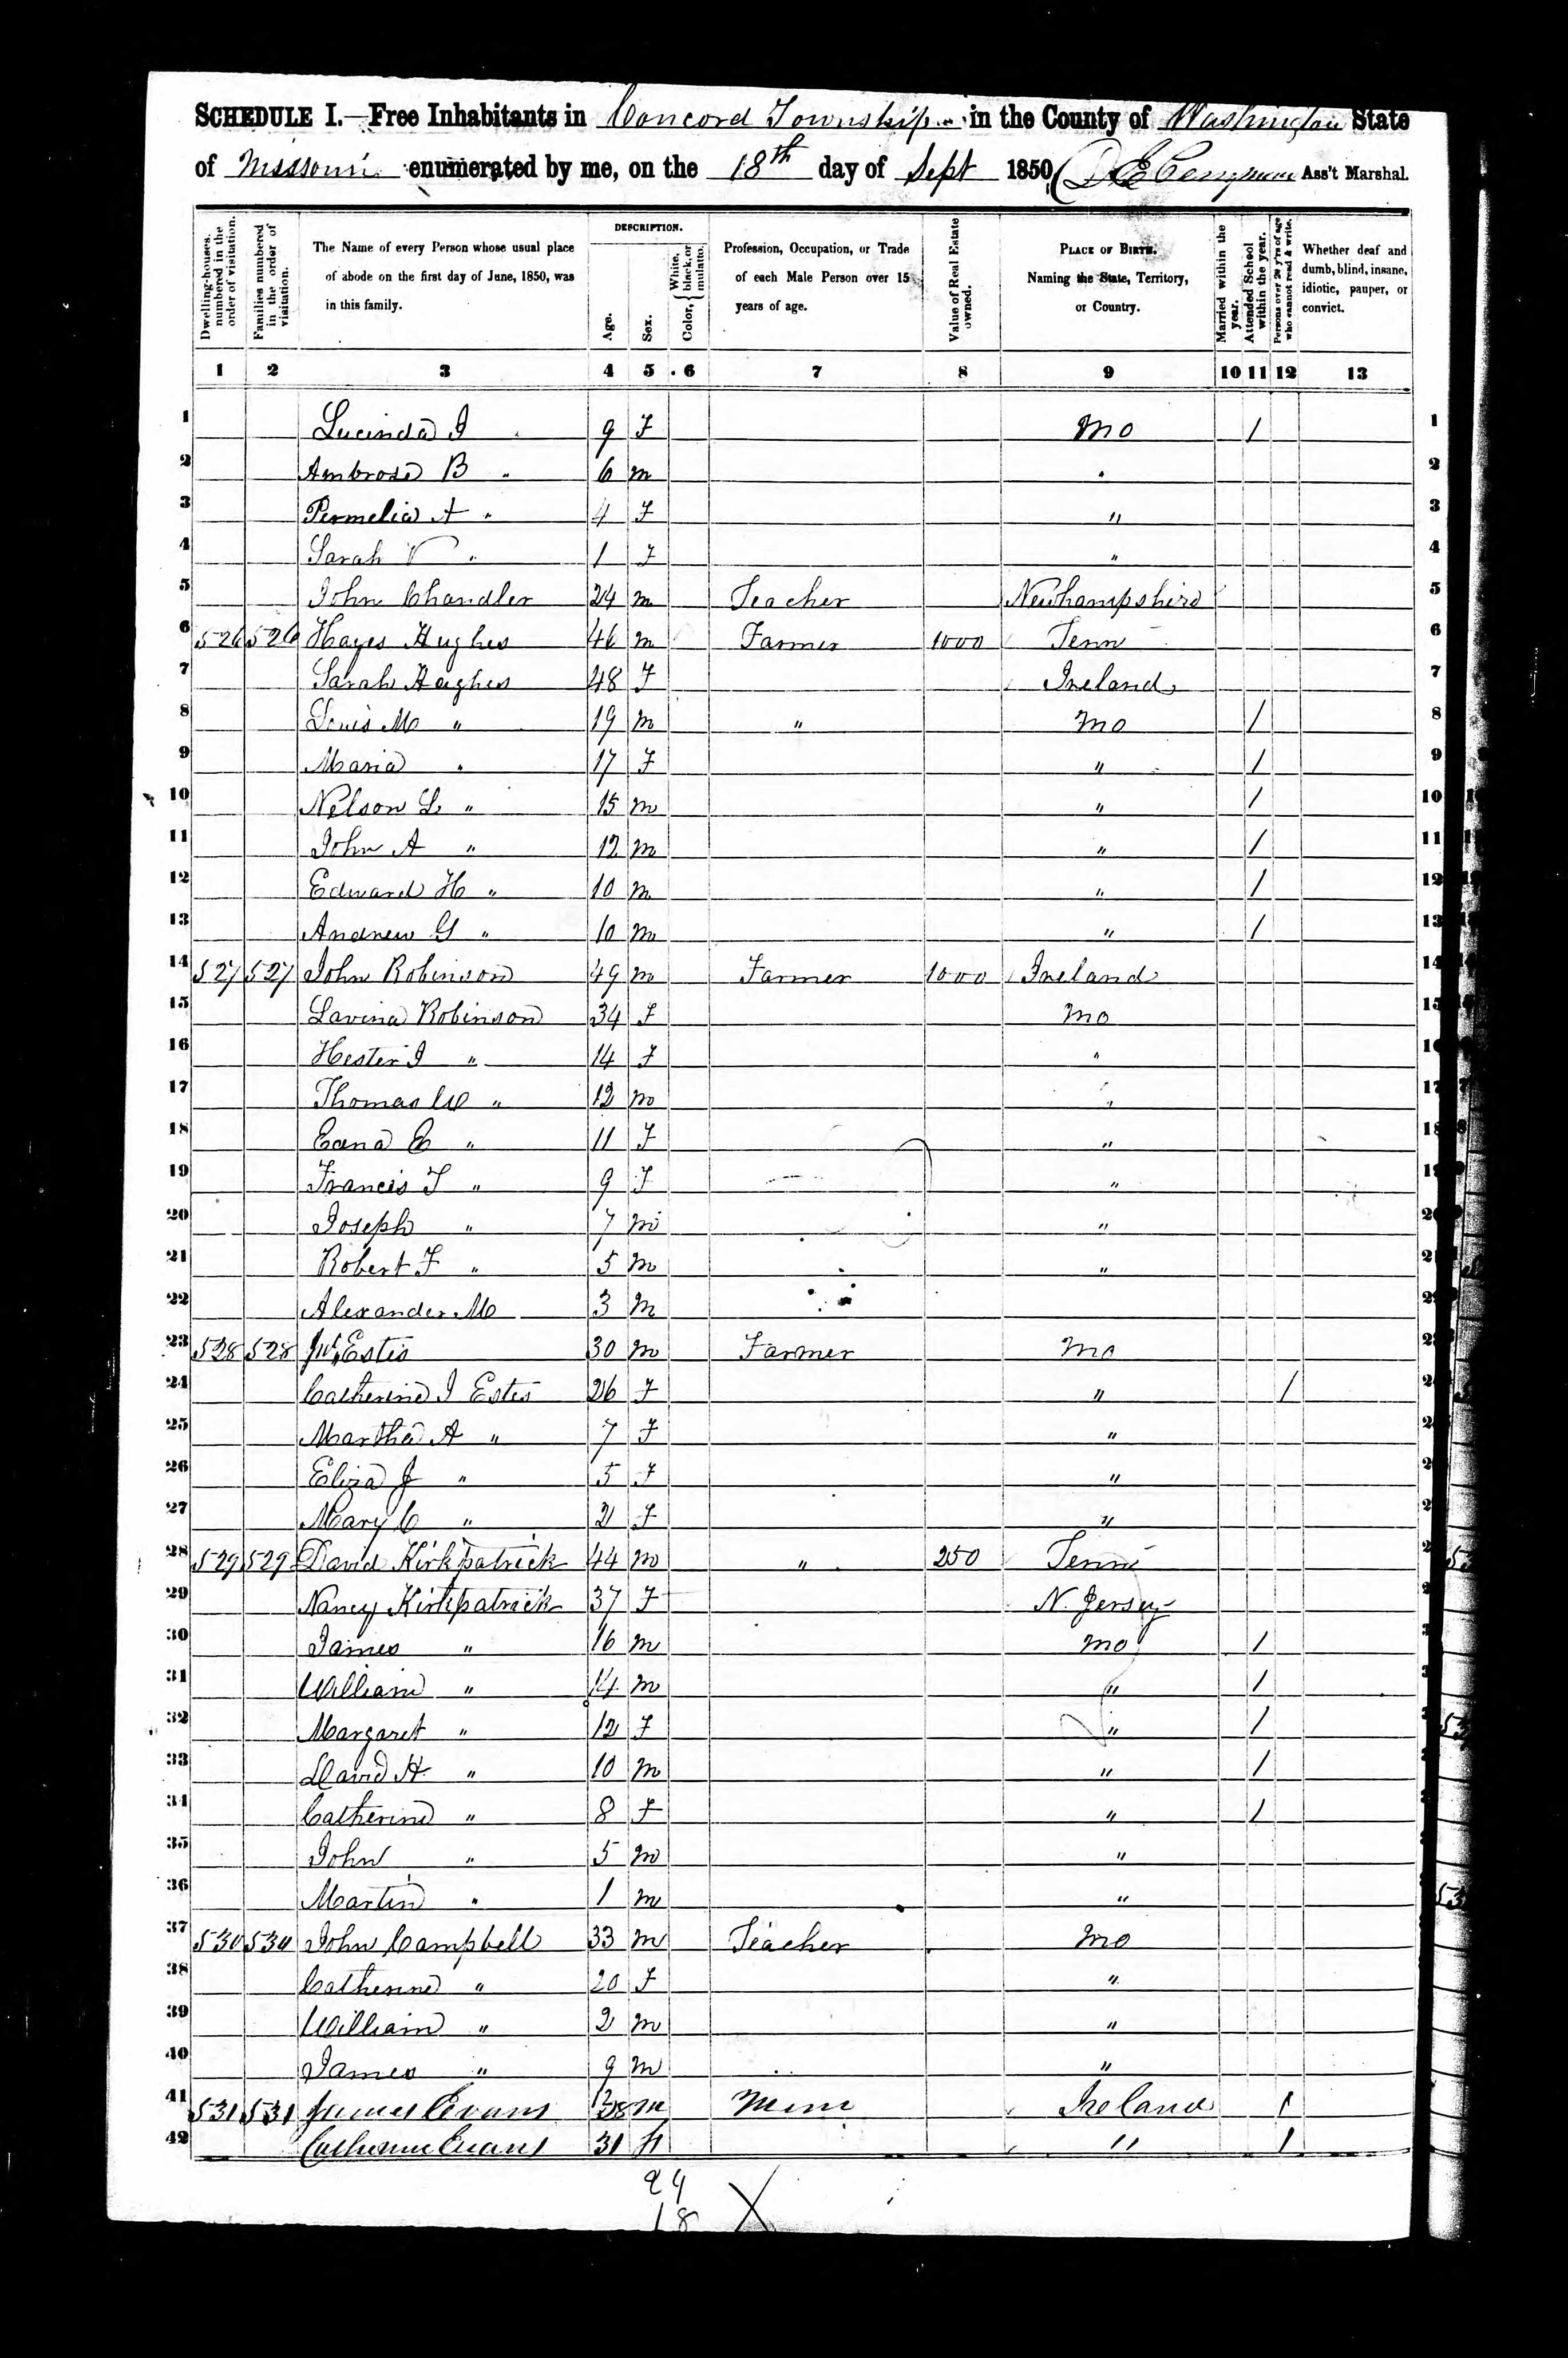 SCHEDULE I.—Free Inhabitants in Concord Township in the County of Washington State
of Missouri enumerated by me, on the 18th day of Sept 1850. Ass't Marshal.
Dwelling-houses numbered in the order of visitation.
Families numbered in the order of visitation.
The Name of every Person whose usual place of abode on the first day of June, 1850, was in this family.
DESCRIPTION.
Age.
Sex.
Color, { White, black, or mulatto.
Profession, Occupation, or Trade of each Male Person over 15 years of age.
Value of Real Estate owned.
PLACE OF BIRTH. Naming the State, Territory, or Country.
Married within the year.
Attended School within the year.
Persons over 20 y'rs of age who cannot read & write.
Whether deaf and dumb, blind, insane, idiotic, pauper, or convict.
1 2 3 4 5 6 7 8 9 10 11 12 13
1 Lucinda J " 9 F Mo / 1
2 Ambrose B " 6 m " 2
3 Permelia A " 4 F " 3
4 Sarah V " 1 F " 4
5 John Chandler 24 m Teacher Newhampshire 5
6 526 526 Hayes Hughes 46 m Farmer 1000 Tenn 6
7 Sarah Hughes 48 F Ireland 7
8 Louis M " 19 m " Mo / 8
9 Maria " 17 F " / 9
10 Nelson L " 15 m " / 10
11 John A " 12 m " / 11
12 Edward H " 10 m " / 12
13 Andrew G " 10 m " / 13
14 527 527 John Robinson 49 m Farmer 1000 Ireland 14
15 Lavina Robinson 34 F Mo 15
16 Hester J " 14 F " 16
17 Thomas W " 12 m " 17
18 E " 11 F " 18
19 Francis T " 9 F " 19
20 Joseph " 7 m " 20
21 Robert F " 5 m " 21
22 Alexander M 3 m 22
23 528 528 Estis 30 m Farmer Mo
24 Catherine J Estis 26 F " /
25 Martha A " 7 F "
26 Eliza J " 5 F "
27 Mary C " 2 F "
28 529 529 David Kirkpatrick 44 m " 250 Tenn
29 Nancy Kirkpatrick 37 F N. Jersey
30 James " 16 m Mo /
31 William " 14 m " /
32 Margaret " 12 F " /
33 David H " 10 m " /
34 Catherine " 8 F " /
35 John " 5 m "
36 Martin " 1 m "
37 530 530 John Campbell 33 m Teacher Mo
38 Catherine " 20 F "
39 William " 2 m "
40 James " 9 m "
41 531 531 James Evans 38 m Ireland /
42 Catherine Evans 31 " /
24
18 X